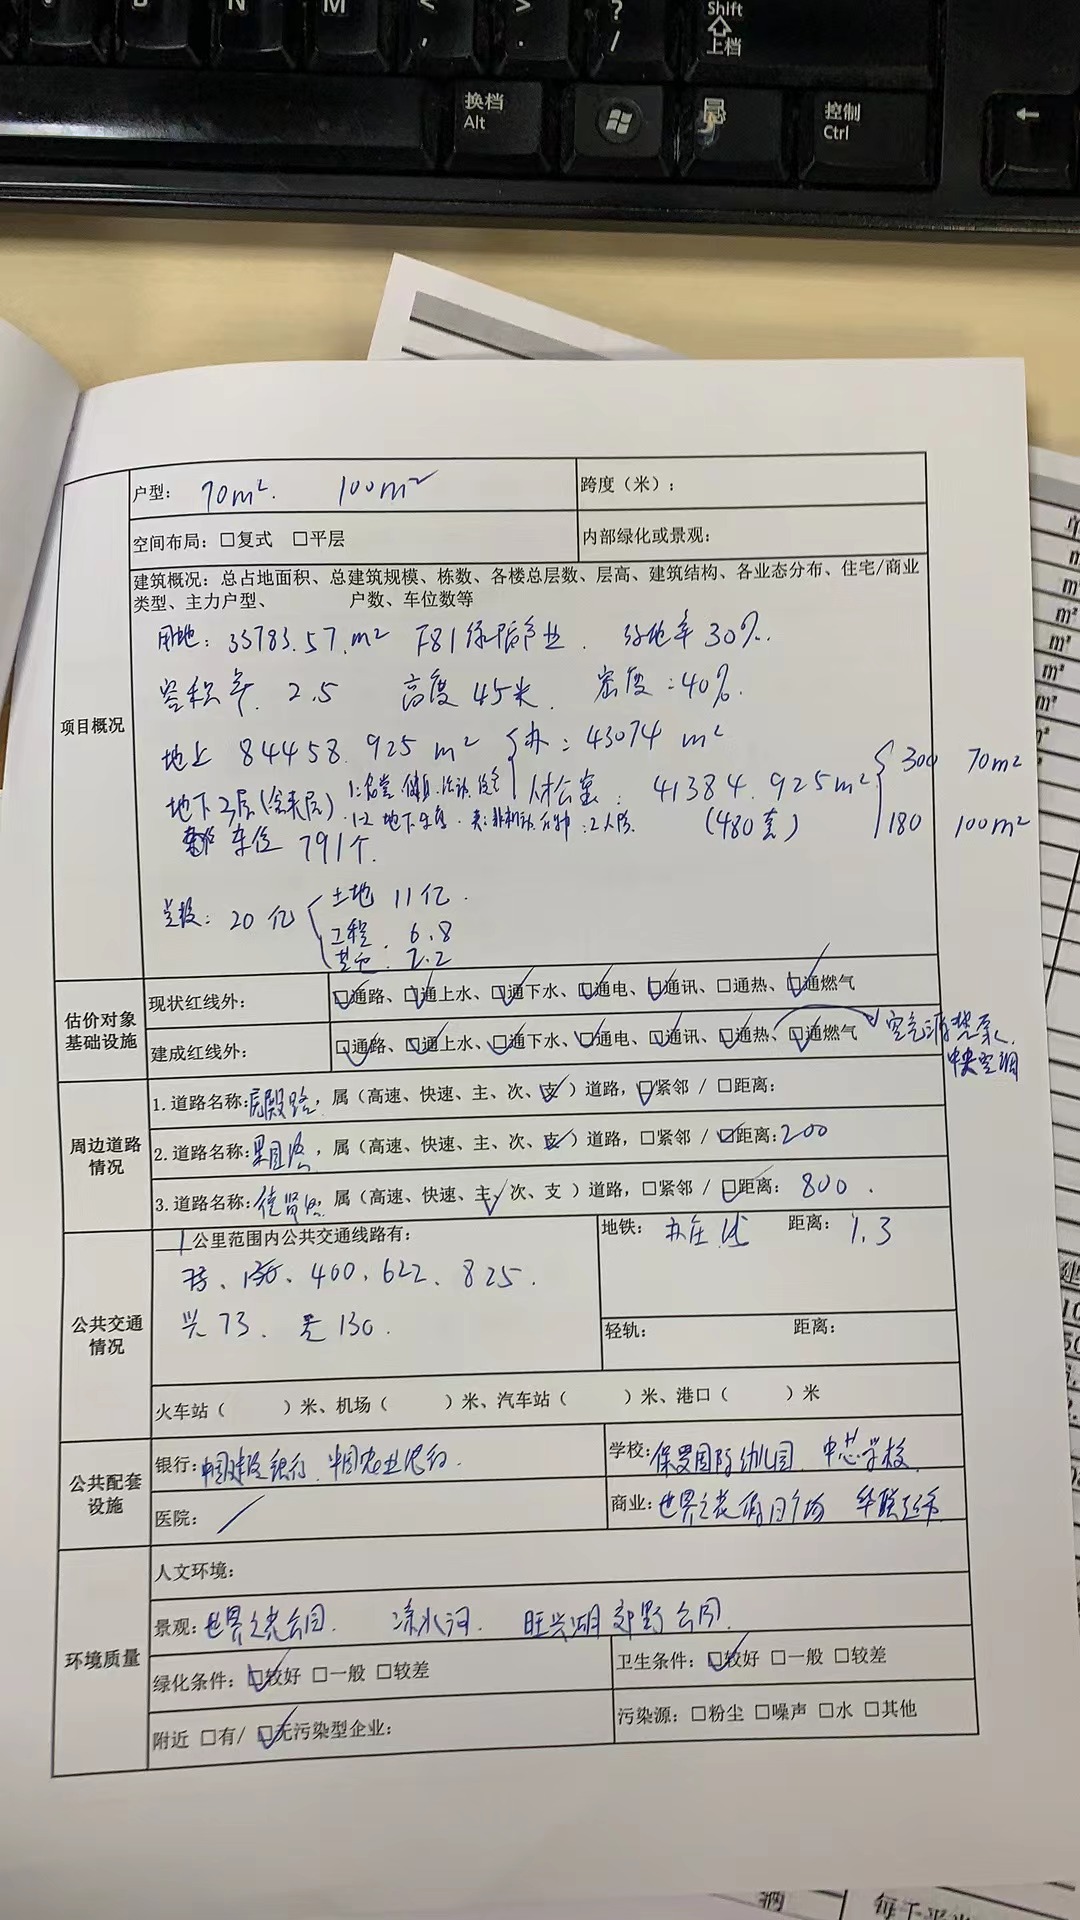 N
M
<
,
>
.
?
/
Shift
上档
换档
Alt
控制
Ctrl
户型: 70m². 100m²
跨度（米）:
空间布局: □复式 □平层
内部绿化或景观:
建筑概况: 总占地面积、总建筑规模、栋数、各楼总层数、层高、建筑结构、各业态分布、住宅/商业
类型、主力户型、 户数、车位数等
用地: 33783.57.m² F81绿隔产业. 绿地率30%.
容积率. 2.5 高度45米. 密度:40%.
项目概况
地上 84458.925 m² 办: 43074 m²
人才公寓. 41384.925m² 300 70m²
地下3层(含夹层).
(480套) 180 100m²
车位 791个.
总投: 20亿 土地 11亿.
工程. 6.8
其他. 2.2
估价对象
基础设施
现状红线外: □通路、□通上水、□通下水、□通电、□通讯、□通热、□通燃气
建成红线外: □通路、□通上水、□通下水、□通电、□通讯、□通热、□通燃气
空气源热泵.
中央空调
周边道路
情况
1.道路名称: 殿路, 属（高速、快速、主、次、支）道路, □紧邻 / □距离:
2.道路名称: , 属（高速、快速、主、次、支）道路, □紧邻 / □距离:200
3.道路名称: 德贤路, 属（高速、快速、主、次、支）道路, □紧邻 / □距离: 800.
公共交通
情况
1公里范围内公共交通线路有:
400、622、825.
兴73. 130.
地铁: 亦庄线 距离: 1.3
轻轨: 距离:
火车站（ ）米、机场（ ）米、汽车站（ ）米、港口（ ）米
公共配套
设施
银行: 中国建设银行、中国农业银行.
学校: 国际幼儿园 中芯学校
医院: /
商业: 世界之花假日广场 华联超市
环境质量
人文环境:
景观: 世界之花公园. 凉水河. 旺兴湖郊野公园.
绿化条件: □较好 □一般 □较差
卫生条件: □较好 □一般 □较差
附近 □有/ □无污染型企业:
污染源: □粉尘 □噪声 □水 □其他